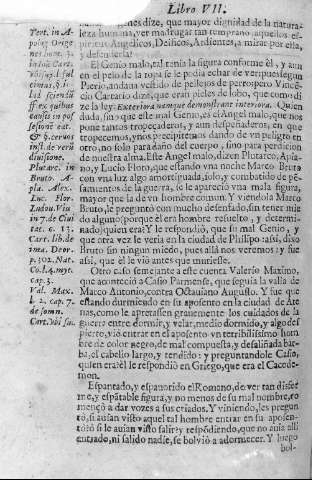 Libro VII.
nes dize, que mayor dignidad de la natura-
leza humana, ver madrugar tan temprano aquellos es-
piritus Angelicos, Deificos, Ardientes, a mirar por ella,
y defenderla!
El Genio malo, tal tenia la figura conforme él, y aun
en el pelo de la ropa se le podia echar de ver: pues segun
Pierio, andaua vestido de pellejos de perro; pero Vincẽ-
cio Carrario dize, que eran pieles de lobo, que como di-
ze la ley: Exteriora namque demonstrant interiora. Quien
duda, sino que este mal Genio, es el Angel malo, que nos
pone tantos tropeçaderos, y aun despeñaderos, en que
tropecemos, y nos precipitemos dando de vn peligro en
otro, no solo para daño del cuerpo, sino para perdicion
de nuestra alma. Este Angel malo, dizen Plutarco, Apia-
no, y Lucio Floro, que estando vna noche Marco Bruto
con vna luz algo amortiguada, solo, y combatido de pe-
samientos de la guerra, se le aparecio vna mala figura,
mayor que la de vn hombre comun. Y viendola Marco
Bruto, le preguntò con mucho desenfado, sin tener mie
do alguno (porque èl era hombre resuelto, y determi-
nado) quien era? Y le respondiò, que su mal Genio, y
que otra vez le veria en la ciudad de Philipo: assi, dixo
Bruto sin ningun miedo, pues allà nos veremos: y fue
assi, que èl le viò antes que muriesse.
Otro caso semejante a este cuenta Valerio Maximo,
que aconteciò a Casio Parmense, que seguia la valìa de
Marco Antonio, contra Octauiano Augusto. Y fue que
estando durmiendo en su aposento en la ciudad de Ate
nas, como le apretassen grauemente los cuidados de la
guerra entre dormir, y velar, medio dormido, y algo des
pierto, viò entrar en el aposento vn terribilissimo hom
bre de color negro, de mal compuesta, y desaliñada bar-
ba, el cabello largo, y tendido: y preguntandole Casio,
quien era? èl le respondiò en Griego, que era el Cacode-
mon.
Espantado, y espauorido el Romano, de ver tan disfor
me, y espãtable figura, y no menos de su mal nombre, co
mençò a dar vozes a sus criados. Y viniendo, les pregun
tò, si auian visto aquel tal hombre entrar en su aposen-
to? ò si le auian visto salir? y respõdiendo, que no auia alli
entrado, ni salido nadie, se boluiò a adormecer. Y luego
bol-
Tert. in A-
polog. Orige
nes hom. 3.
Plutarc. in
Bruto. A-
pia. Alex.
Luc. Flor.
Ludou. Viu
in 7. de Ciui
tat. c. 13.
Carr. lib. de
p. 302. Nat.
Co. l. 4. myt.
cap. 3.
Val. Max.
l. 2. cap. 7.
de somn.